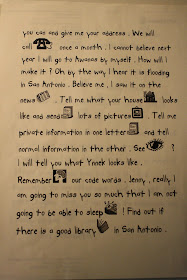 you can and give me your address. We will
call once a month. I cannot believe next
year I will go to Awacas by myself. How will I
make it? Oh by the way I hear it is flooding
in San Antonio. Believe me, I saw it on the
news. Tell me what your house looks
like and send lots of pictures. Tell me
private information in one letter and tell
normal information in the other. See ?
I will tell you what Ynnek looks like.
Remember our code words. Jenny, really I
am going to miss you so much that I am not
going to be able to sleep! Find out if
there is a good library in San Antonio.